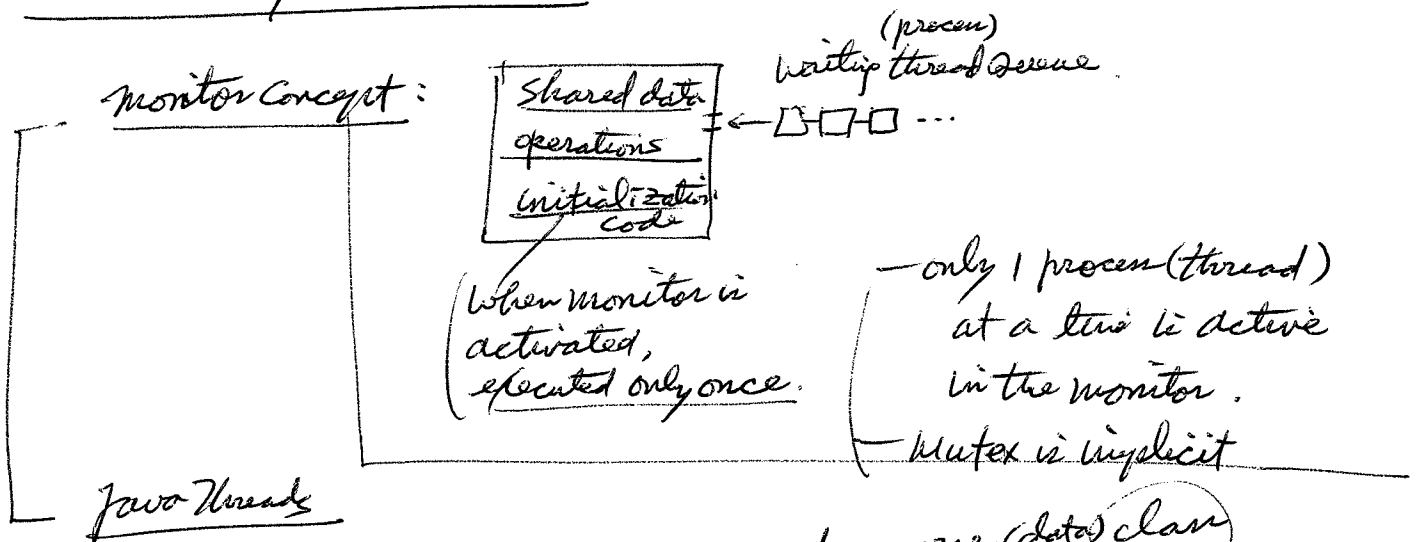 Monitor Concept :
Shared data
operations
initialization
code
(process)
Waiting thread Queue.
...
(When monitor is
activated,
executed only once.
— only 1 process (thread)
at a time is active
in the monitor.
— Mutex is implicit
Java Threads
(data) class